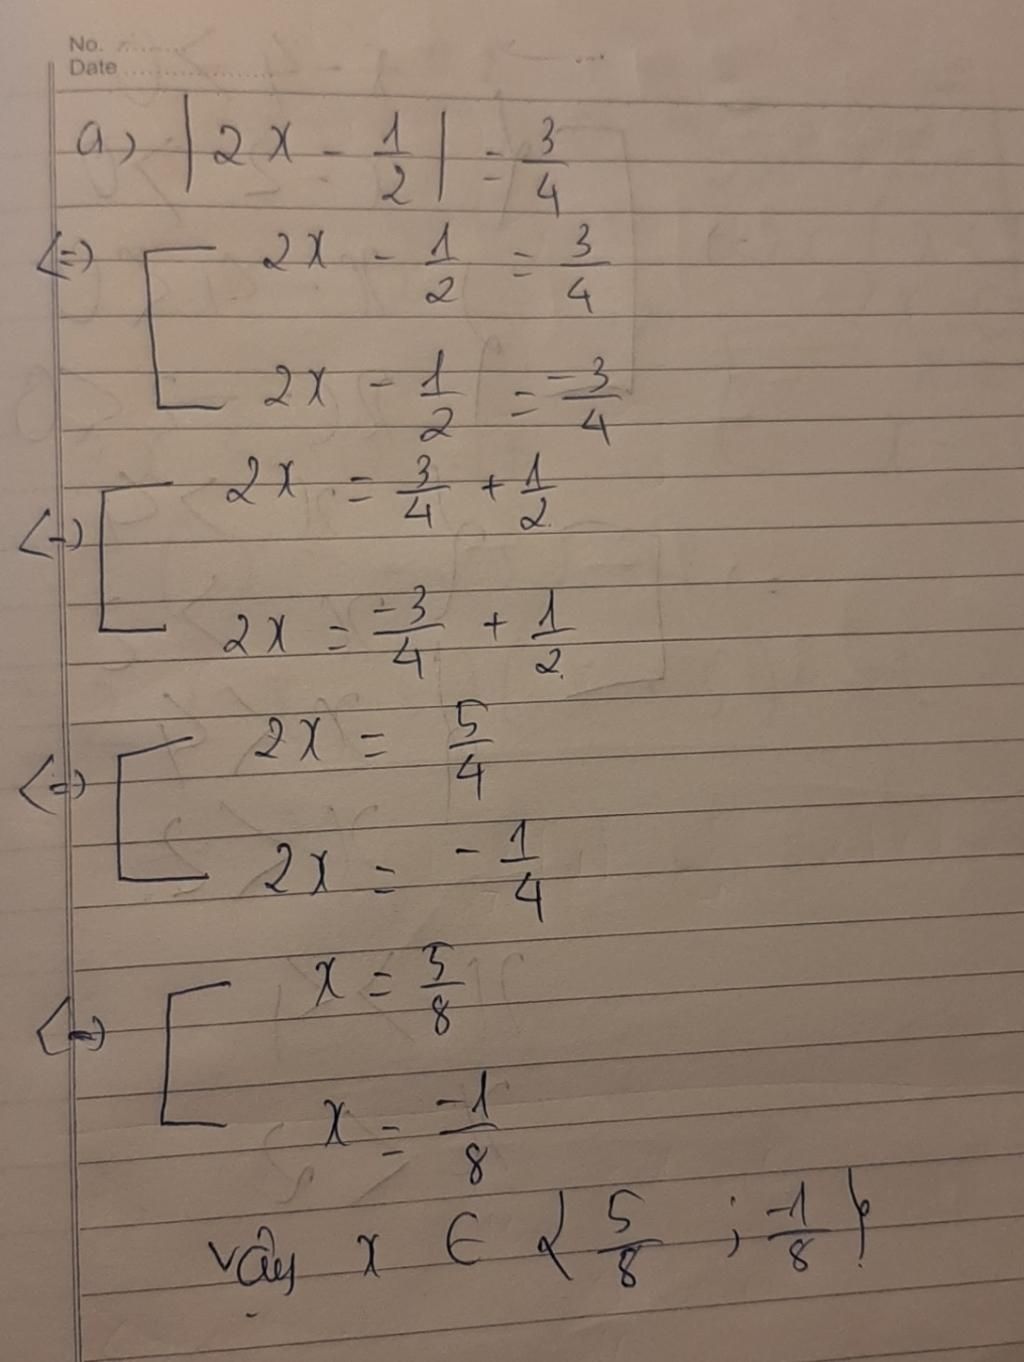 No. ........
Date ....................
a, |2x - 1/2| = 3/4
<=> [ 2x - 1/2 = 3/4
2x - 1/2 = -3/4
<=> [ 2x = 3/4 + 1/2
2x = -3/4 + 1/2
<=> [ 2x = 5/4
2x = -1/4
<=> [ x = 5/8
x = -1/8
vậy x ∈ { 5/8 ; -1/8 }